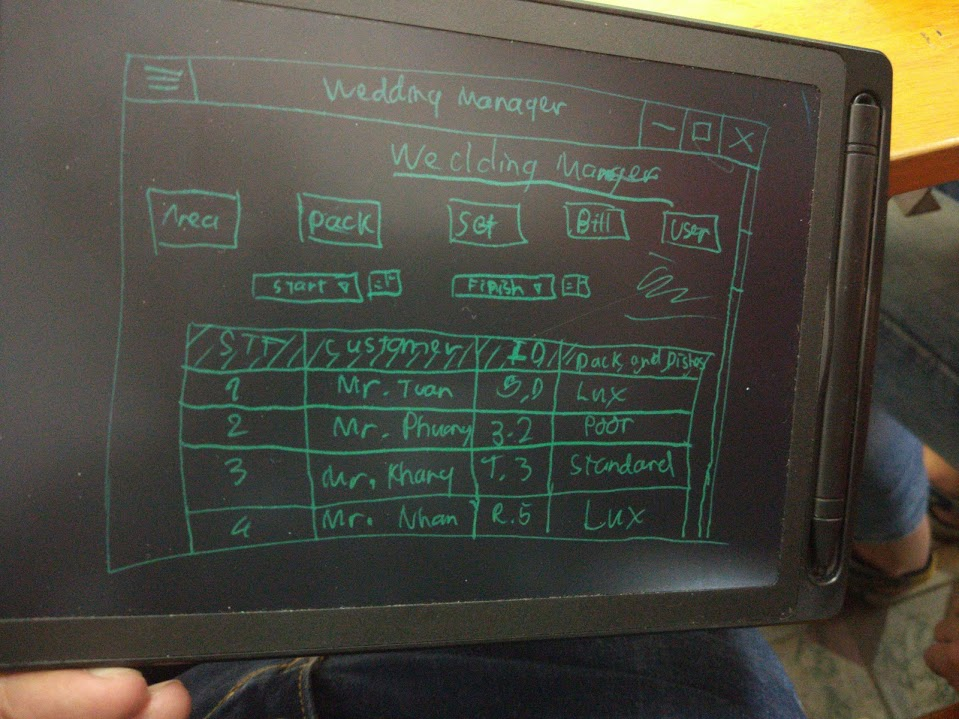 Wedding Manager
Wedding Manger
Area Pack Set Bill User
Start Finish
STT Customer ID Pack and Dishes
1 Mr. Tuan Lux
2 Mr. Phuong 3.2 Poor
3 Mr. Khang T.3 Standard
4 Mr. Nhan R.5 Lux